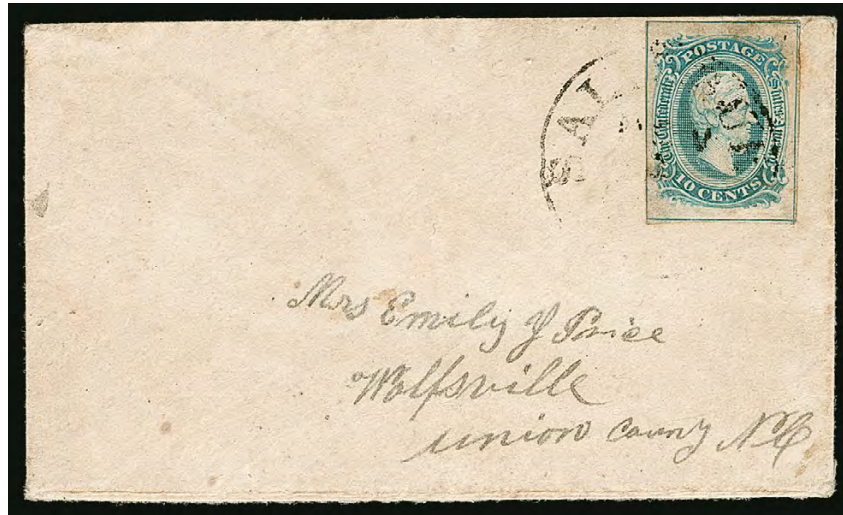 SAL
POSTAGE
The Confederate States of America
10 CENTS
Mrs Emily J Price
Wolfsville
union Couny N C